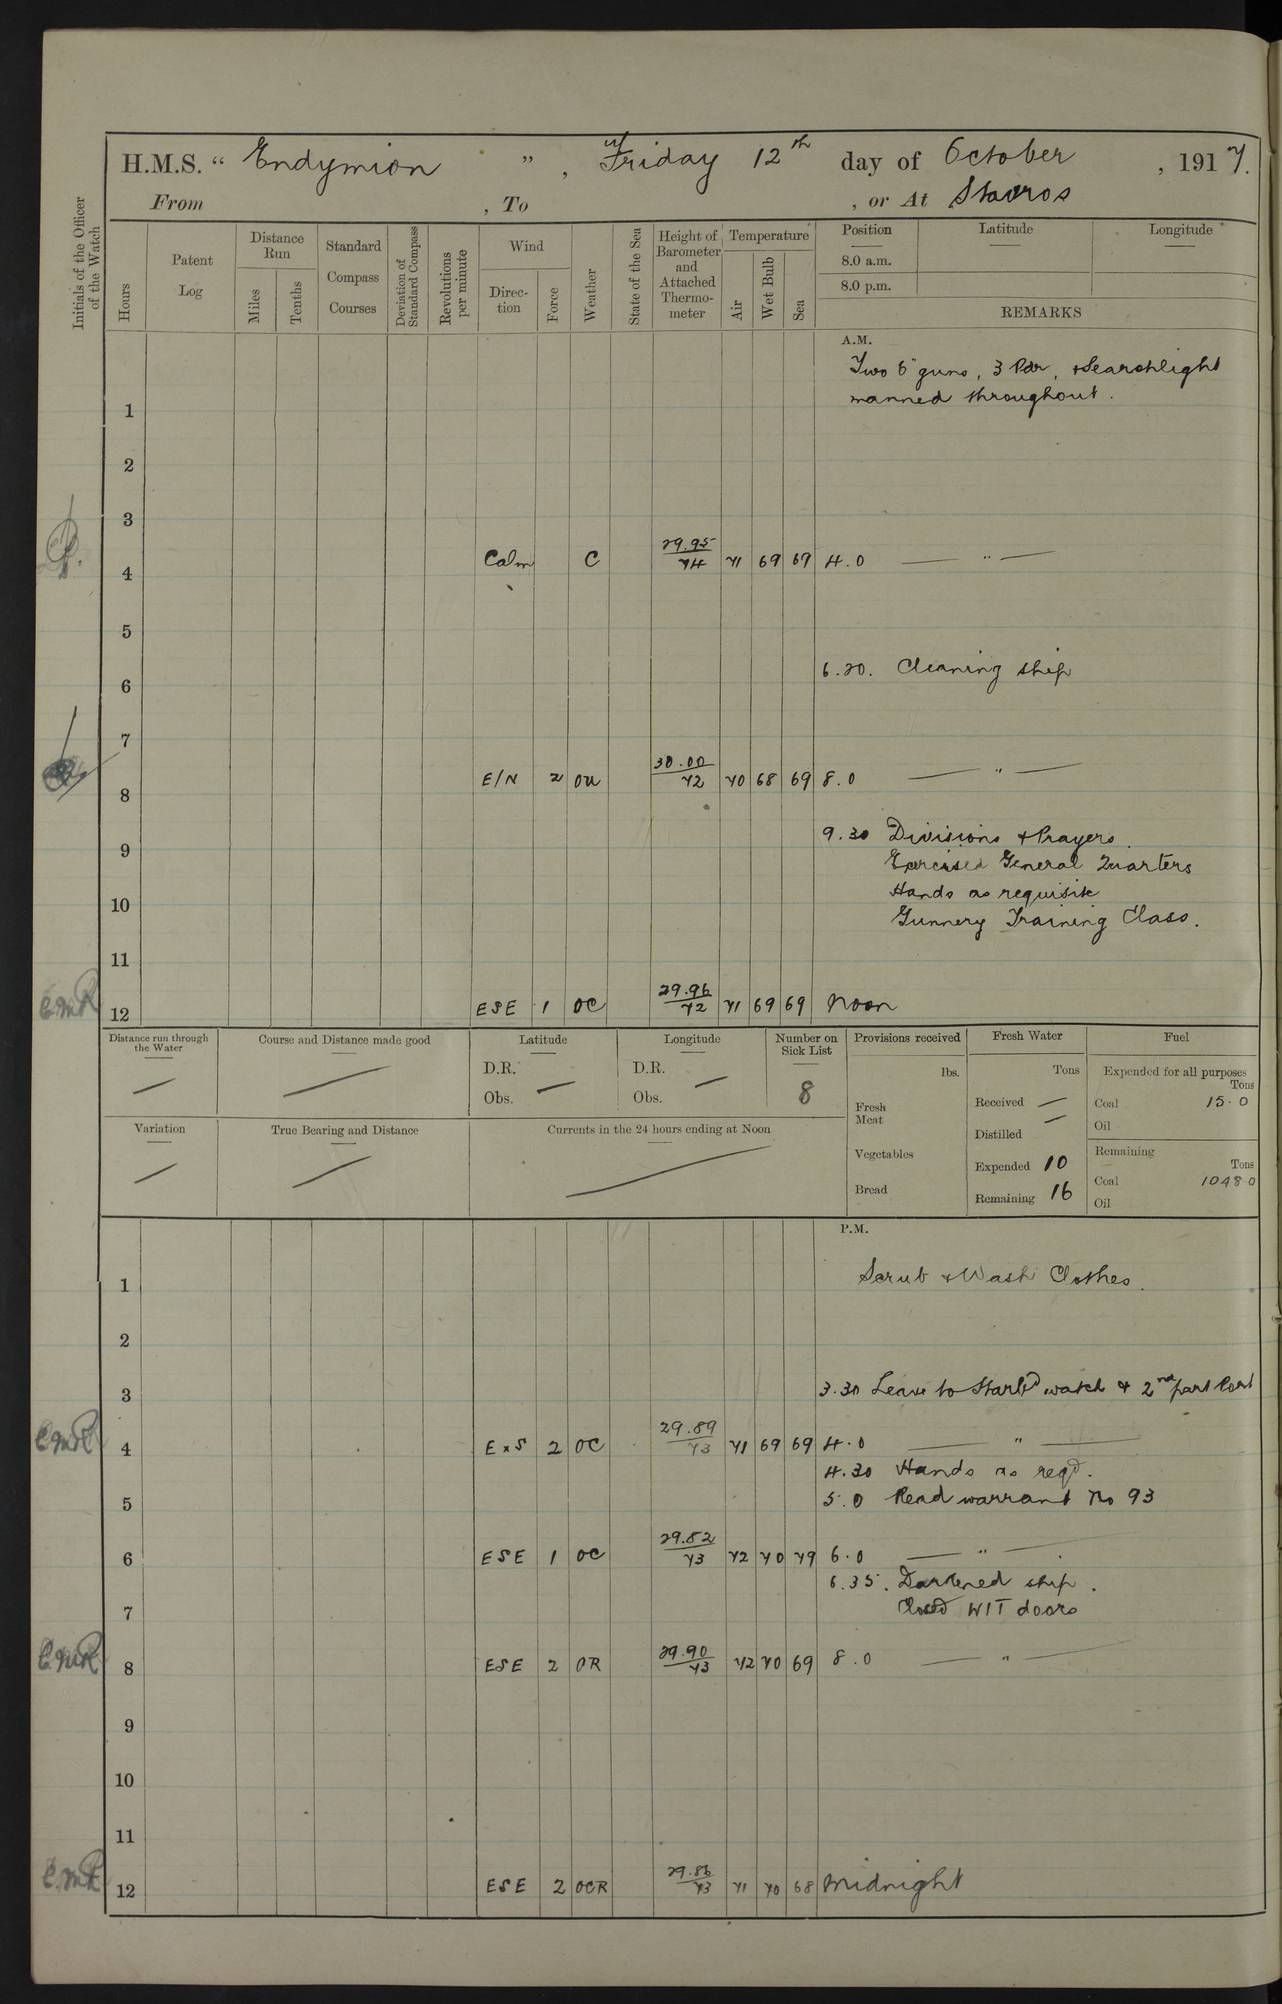 H.M.S. “ Endymion ”, Friday 12th day of October, 1917.
From , To , or At Stavros
Initials of the Officer of the Watch
Hours
Patent Log
Distance Run
Miles
Tenths
Standard Compass Courses
Deviation of Standard Compass
Revolutions per minute
Wind
Direc-tion
Force
Weather
State of the Sea
Height of Barometer and Attached Thermo-meter
Temperature
Air
Wet Bulb
Sea
Position
Latitude
Longitude
8.0 a.m.
8.0 p.m.
REMARKS
A.M.
Two 6" guns, 3 Pdr, & Searchlight
manned throughout.
1
2
3
4 Calm C 29.95/74 71 69 69 4.0 — " —
5
6.20. Cleaning ship
6
7
8 E/N 2 OU 30.00/72 70 68 69 8.0 — " —
9.30 Divisions & Prayers.
9
Exercised General Quarters
Hands as requisite
10
Gunnery Training Class.
11
EMR 12 ESE 1 OC 29.96/72 71 69 69 Noon
Distance run through the Water
—
Course and Distance made good
—
Latitude
D.R.
Obs. —
Longitude
D.R.
Obs. —
Number on Sick List
8
Provisions received
lbs.
Fresh Meat
Vegetables
Bread
Fresh Water
Tons
Received —
Distilled —
Expended 10
Remaining 16
Fuel
Expended for all purposes
Tons
Coal 15.0
Oil
Remaining
Tons
Coal 1048.0
Oil
Variation
—
True Bearing and Distance
—
Currents in the 24 hours ending at Noon
—
P.M.
Scrub & Wash Clothes.
1
2
3
3.30 Leave to Starbd watch & 2nd part Port
EMR 4 E x S 2 OC 29.89/73 71 69 69 4.0 — " —
4.30 Hands as reqd.
5.0 Read warrant No 93
5
6 ESE 1 OC 29.82/73 72 70 79 6.0 — " —
6.35. Darkened ship.
7 Closed W/T doors
EMR 8 ESE 2 OR 29.90/73 72 70 69 8.0 — " —
9
10
11
EMR 12 ESE 2 OCR 29.86/73 71 70 68 Midnight